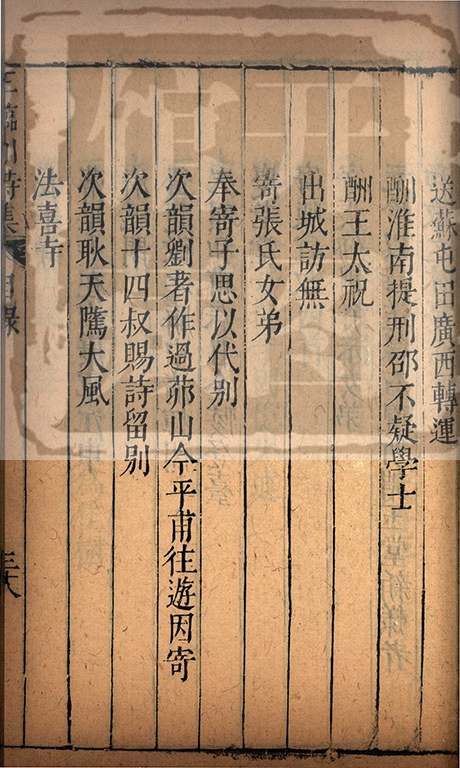 送蘇屯田廣西轉運
酬淮南提刑邵不疑學士
酬王太祝
出城訪無
寄張氏女弟
奉寄子思以代別
次韻劉著作過茆山今平甫往遊因寄
次韻十四叔賜詩留別
次韻耿天隲大風
法喜寺
王臨川詩集 目錄